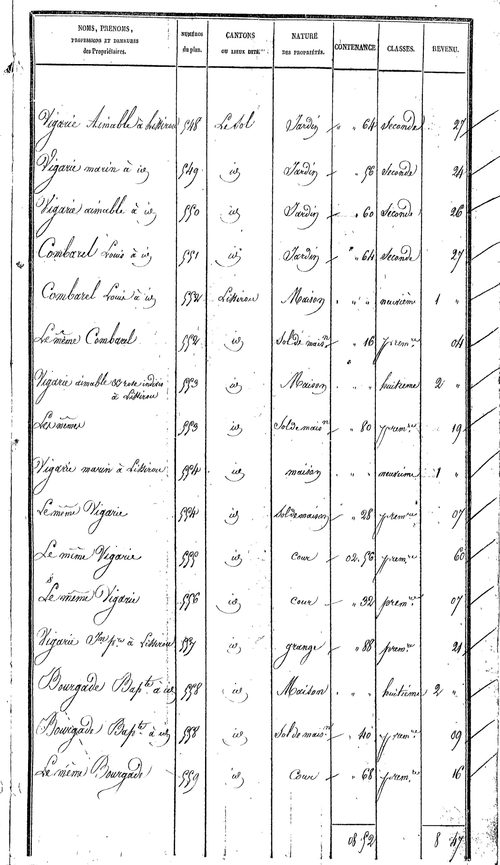 NOMS, PRENOMS, PROFESSIONS ET DEMEURES des Propriétaires. NUMÉROS du plan. CANTONS OU LIEUX DITS. NATURE DES PROPRIÉTÉS. CONTENANCE. CLASSES. REVENU.
Vigarie Aimable à Littirou 548 Le Sol Jardin " " 64 Seconde 27
Vigarie marin à id 549 id Jardin " 56 Seconde 24
Vigarie aimable à id 550 id Jardin " 60 Seconde 26
Combarel Louis à id 551 id Jardin " 64 Seconde 27
Combarel Louis à id 552 Littirou Maison " " " neuvième 1 "
Le même Combarel 552 id Sol de maison " 16 prem.re 04
Vigarie aimable & rose indivis à Littirou 553 id Maison " " huitieme 2 "
Les mêmes 553 id Sol de maison " 80 prem.re 19
Vigarie marin à Littirou 554 id maison " " neuvieme 1 "
Le même Vigarie 554 id Sol de maison " 28 prem.re 07
Le même Vigarie 555 id cour 02.56 prem.re 60
Le même Vigarie 556 id cour " 32 prem.re 07
Vigarie à Littirou 557 id grange " 88 prem.re 21
Bourgade Bap.te à id 558 id Maison " " huitieme 2 "
Bourgade Bap.te à id 558 id Sol de maison " 40 prem.re 09
Le même Bourgade 559 id Cour " 68 prem.re 16
08 52 8 47